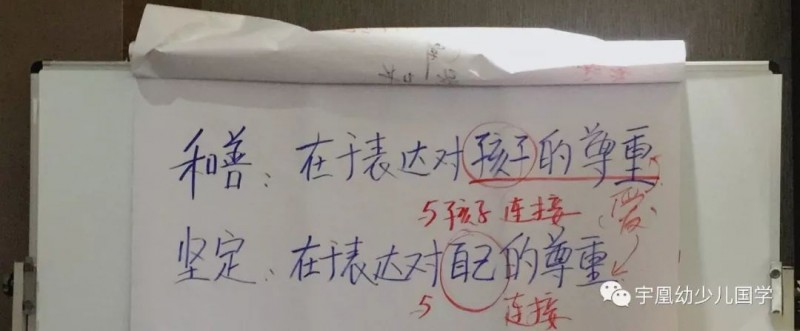 和善：在于表达对孩子的尊重
与孩子连接
爱
坚定：在于表达对自己的尊重
与 连接
宇凰幼少儿国学